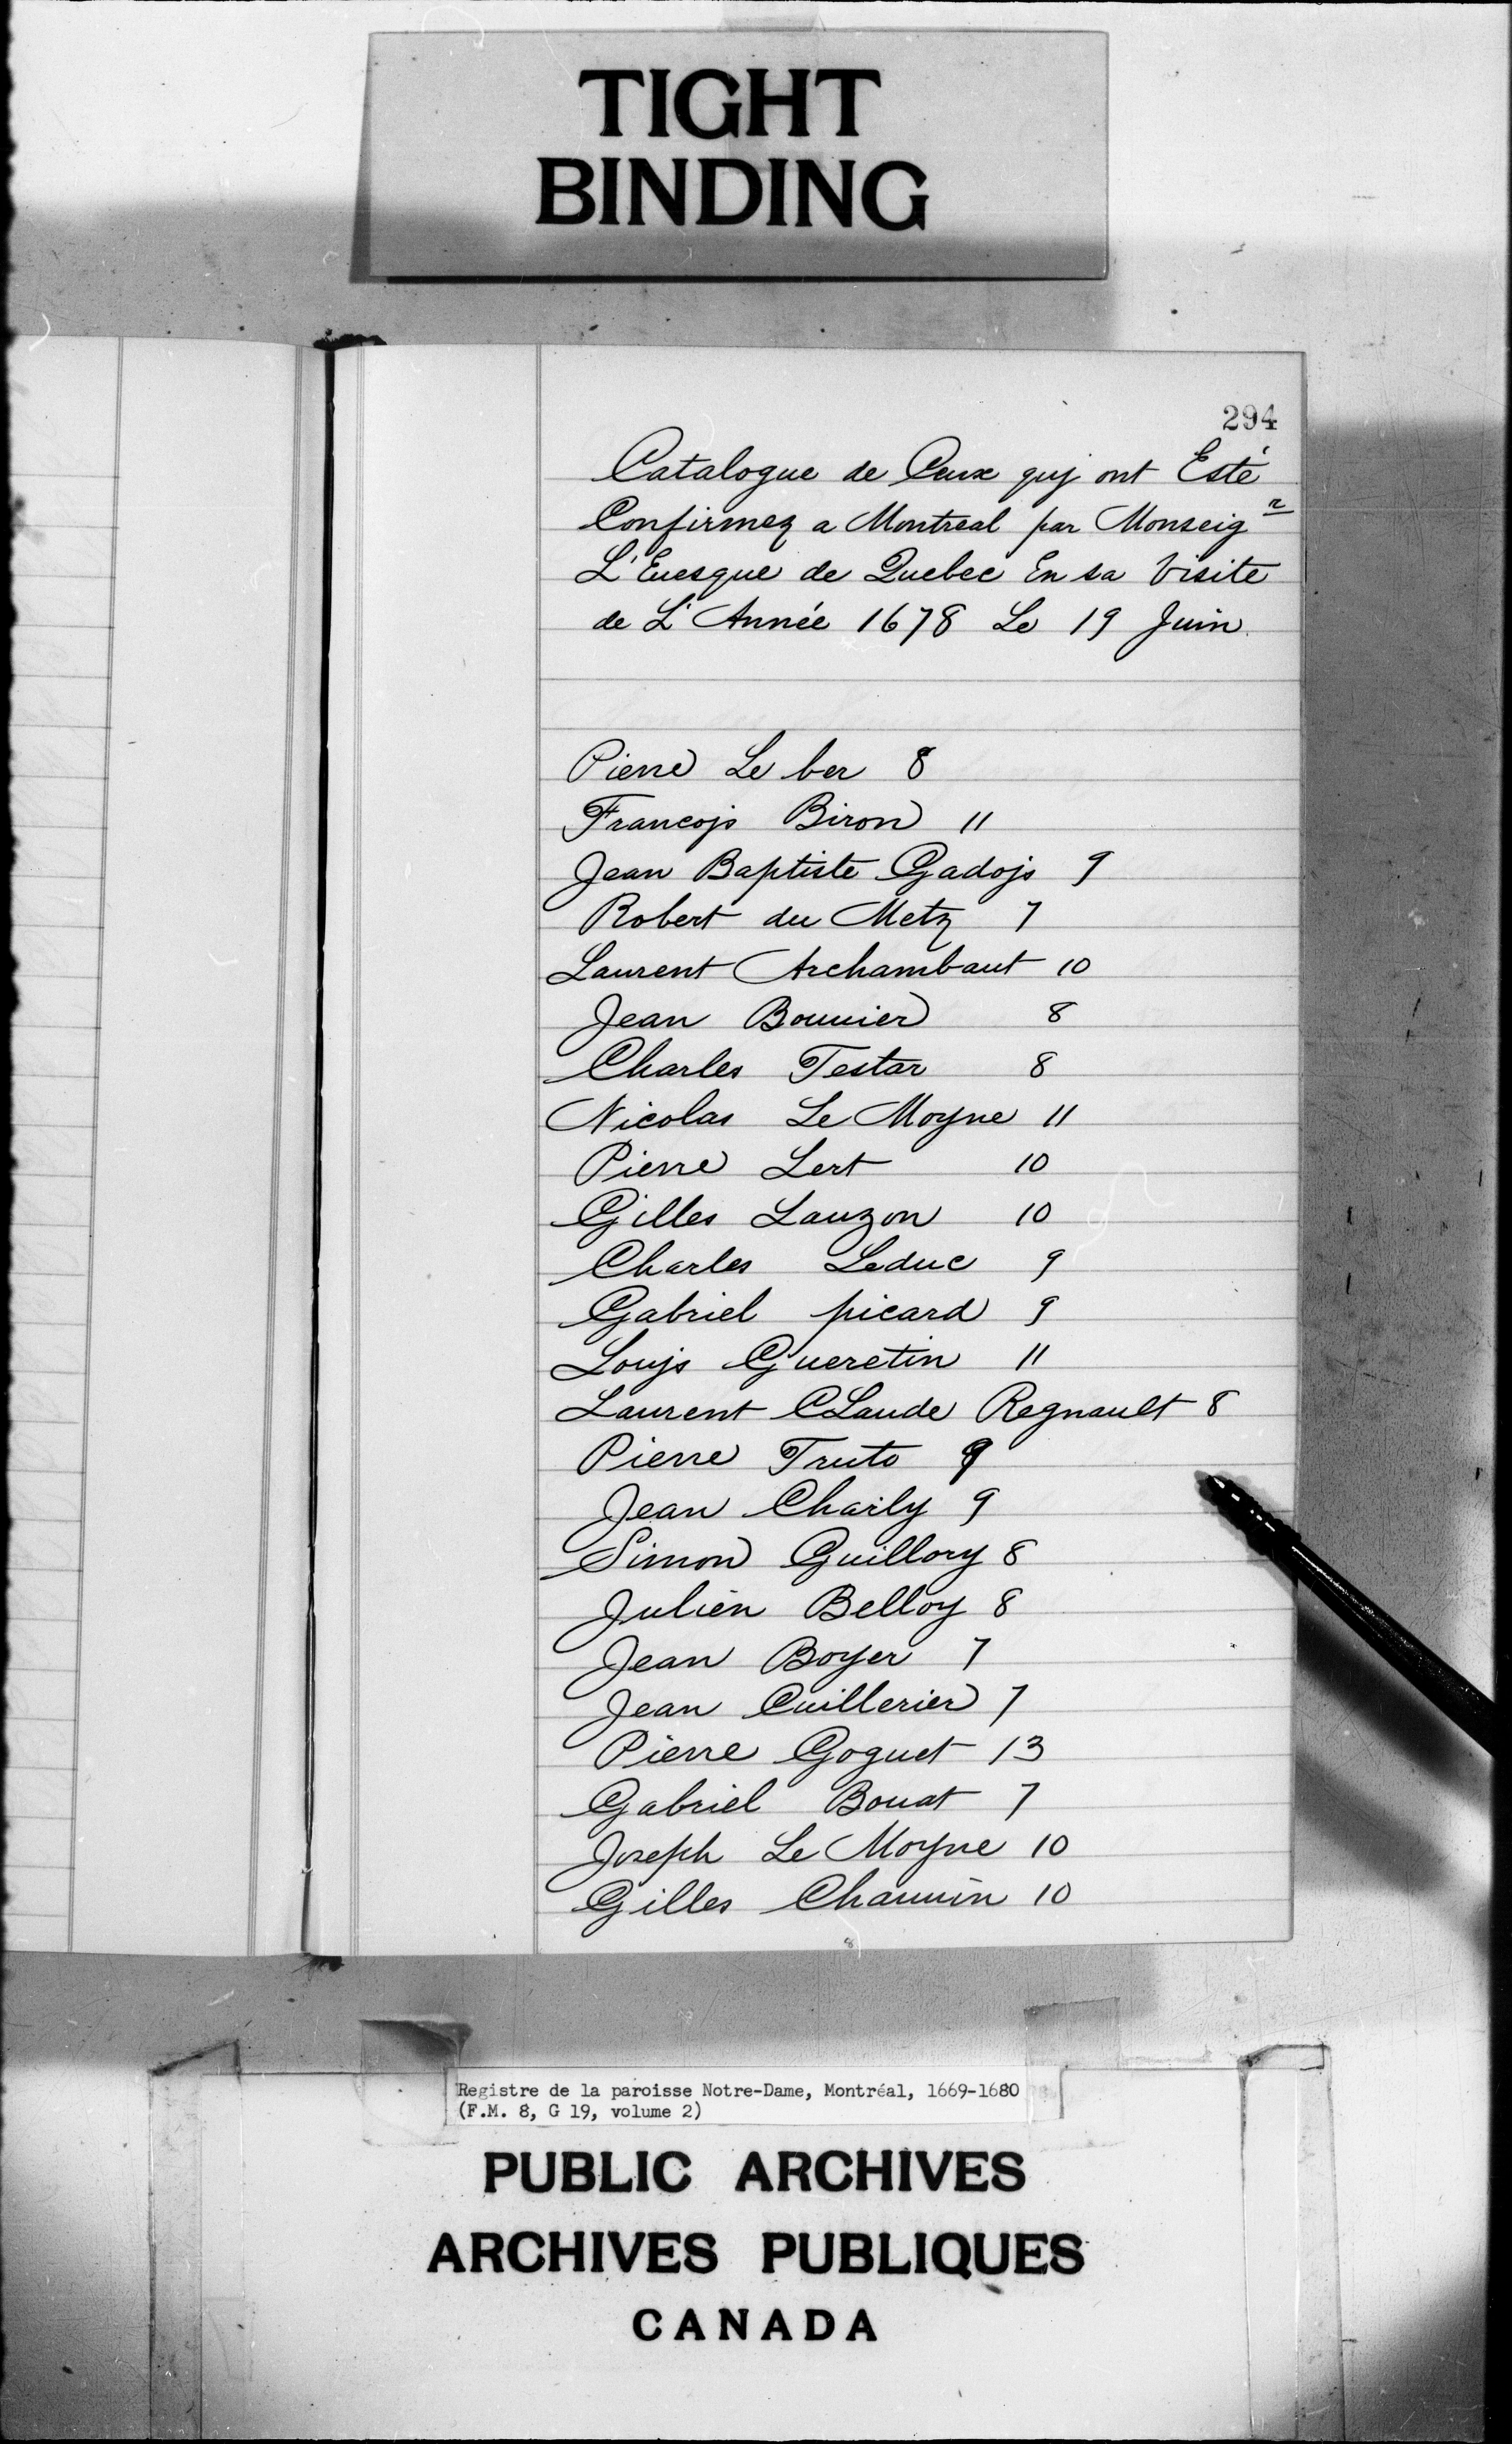 TIGHT
BINDING
294
Catalogue de Ceux quj ont Esté
Confirmez a Montreal par Monseigr
L'Euesque de Quebec En sa Visite
de L'Année 1678 Le 19 Juin.
Pierre Le ber 8
Francojs Biron 11
Jean Baptiste Gadojs 9
Robert du Metz 7
Laurent Archambaut 10
Jean Bouuier 8
Charles Testar 8
Nicolas Le Moyne 11
Pierre Lert 10
Gilles Lauzon 10
Charles Leduc 9
Gabriel picard 9
Loujs Gueretin 11
Laurent CLaude Regnault 8
Pierre Truto 9
Jean Charly 9
Simon Guillory 8
Julien Belloy 8
Jean Boyer 7
Jean Cuillerier 7
Pierre Goguet 13
Gabriel Bouat 7
Joseph Le Moyne 10
Gilles Chauuin 10
8
Registre de la paroisse Notre-Dame, Montréal, 1669-1680
(F.M. 8, G 19, volume 2)
PUBLIC ARCHIVES
ARCHIVES PUBLIQUES
CANADA